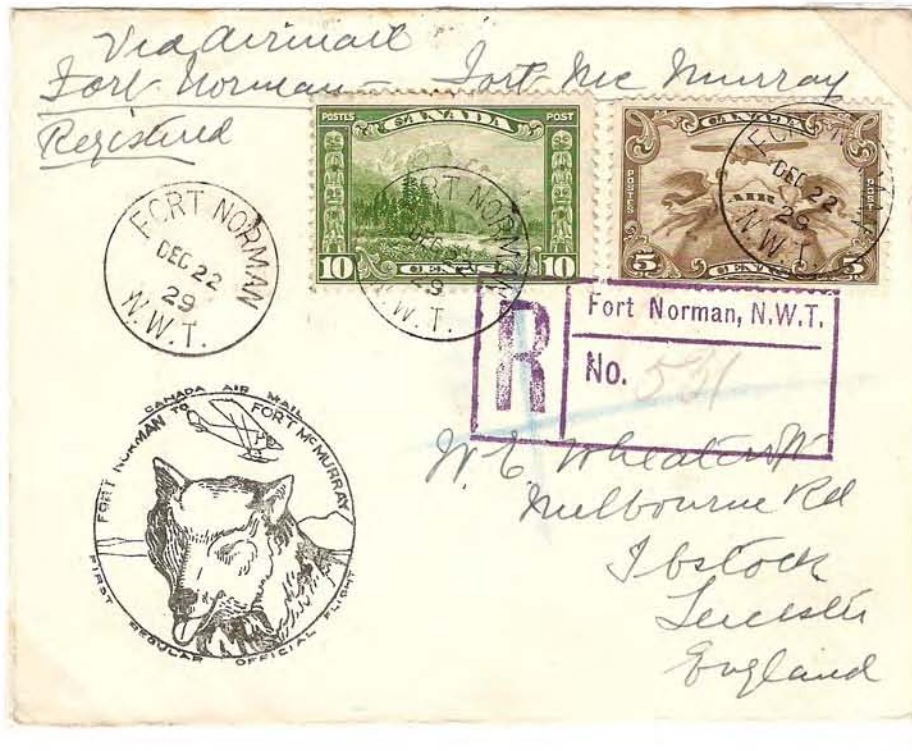 Via Airmail
Fort Norman — Fort Mc Murray
Registered
POSTES CANADA POST
10 CENTS 10
CANADA
POSTES
5 CENTS 5
FORT NORMAN
DEC 22
29
N.W.T.
FORT NORMAN
DEC 22
29
N.W.T.
DEC 22
29
N.W.T.
R
Fort Norman, N.W.T.
No. 531
CANADA AIR MAIL
FORT NORMAN TO FORT McMURRAY
FIRST REGULAR OFFICIAL FLIGHT
W. E. Wheater
Melbourne Rd
Ibstock
Leicester
England